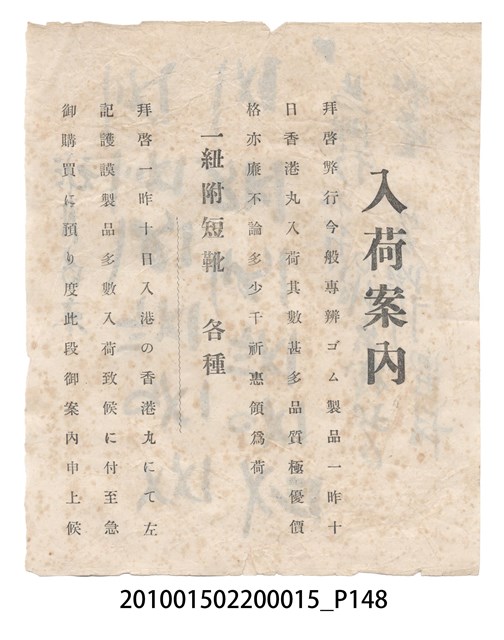 入荷案內
拜啓弊行今般專辨ゴム製品一昨十
日香港丸入荷其數甚多品質極優價
格亦廉不論多少千祈惠領爲荷
一紐附短靴　各種
拜啓一昨十日入港の香港丸にて左
記護謨製品多數入荷致候に付至急
御購買に預り度此段御案內申上候
201001502200015_P148